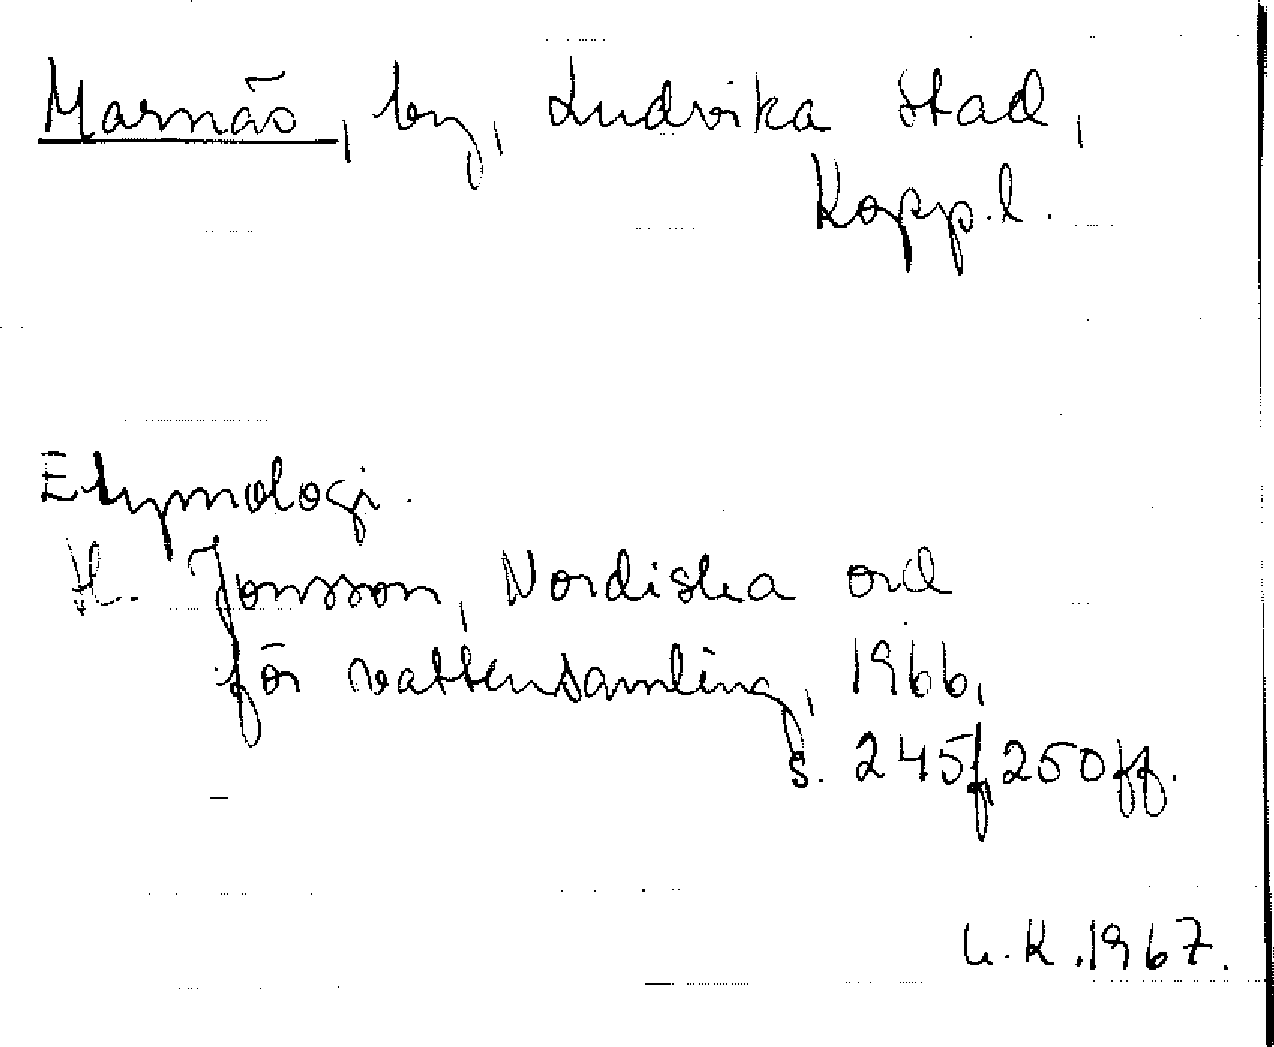 Marnäs, by, Ludvika stad,
Kopp.l.
Etymologi.
H. Jonsson, Nordiska ord
för vattensamling, 1966,
s. 245f, 250ff.
L.K. 1967.